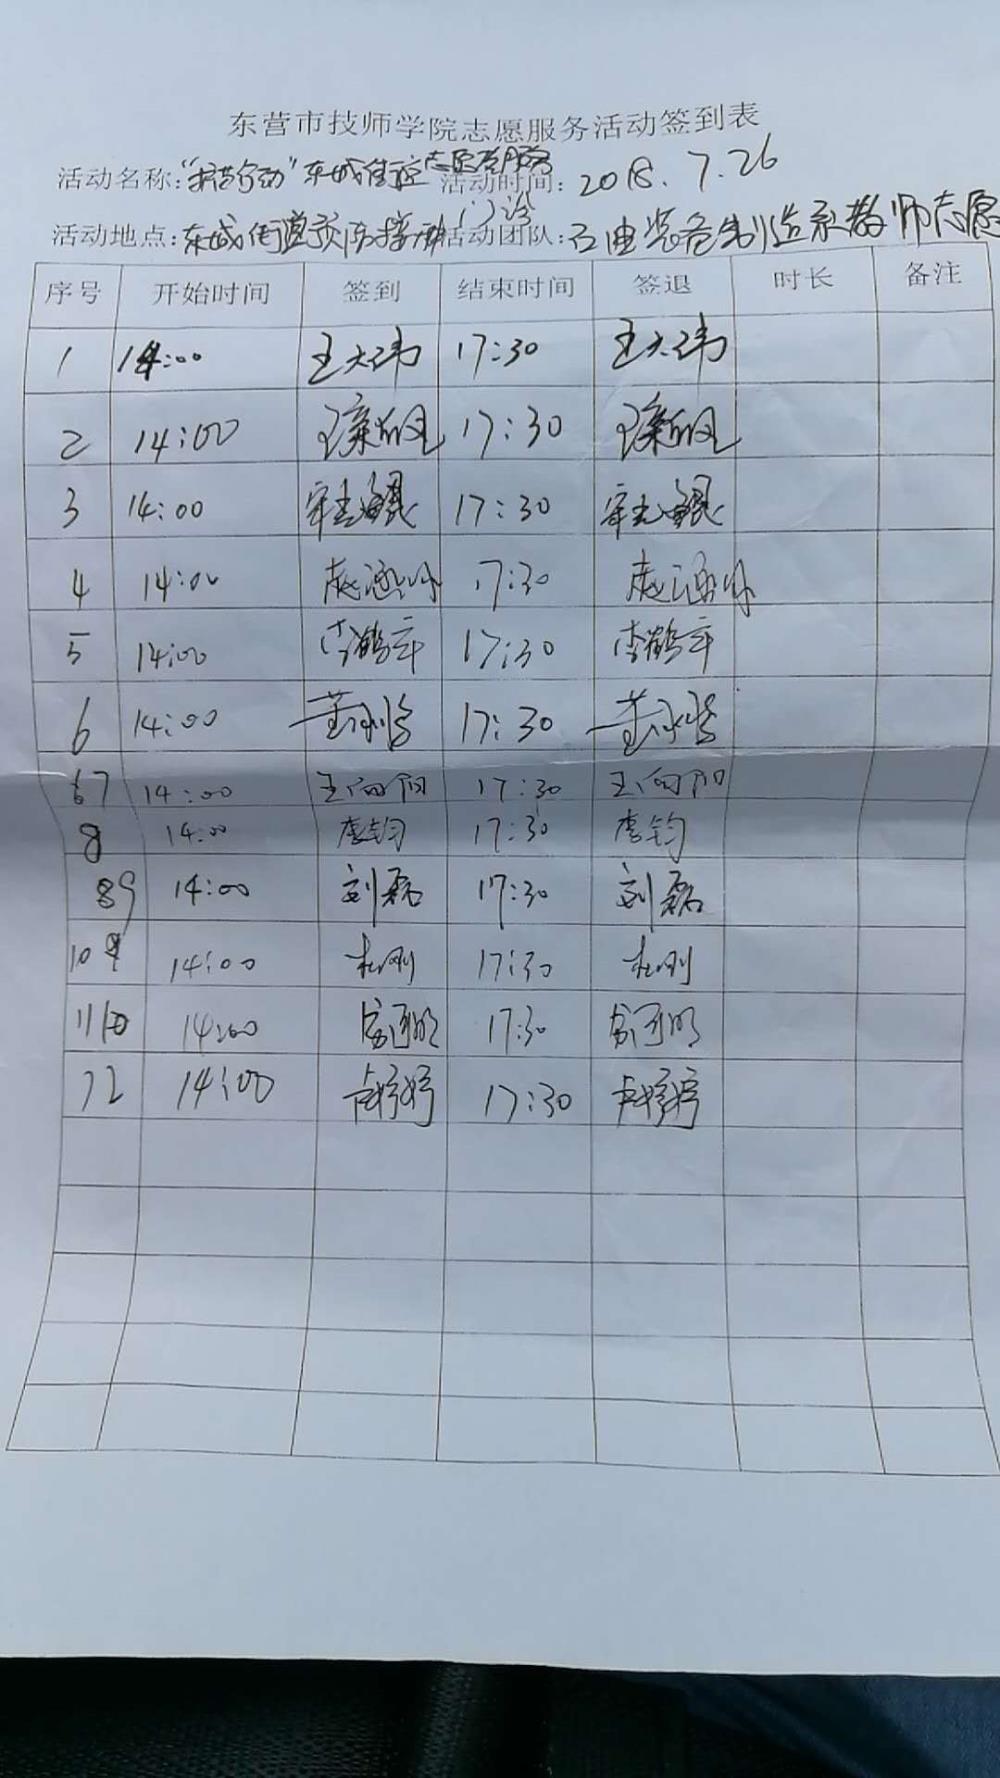 东营市技师学院志愿服务活动签到表
活动名称：“护苗行动”东城街道志愿服务 活动时间：2018.7.26
活动地点：东城街道预防接种门诊 活动团队：石油装备制造系教师志愿
序号 开始时间 签到 结束时间 签退 时长 备注
1 14:00 王大玮 17:30 王大玮
2 14:00 17:30
3 14:00 17:30
4 14:00 17:30
5 14:00 李鹤年 17:30 李鹤年
6 14:00 17:30
7 14:00 王向阳 17:30 王向阳
8 14:00 李钧 17:30 李钧
9 14:00 刘磊 17:30 刘磊
10 14:00 杜刚 17:30 杜刚
11 14:00 17:30
12 14:00 卢婷婷 17:30 卢婷婷